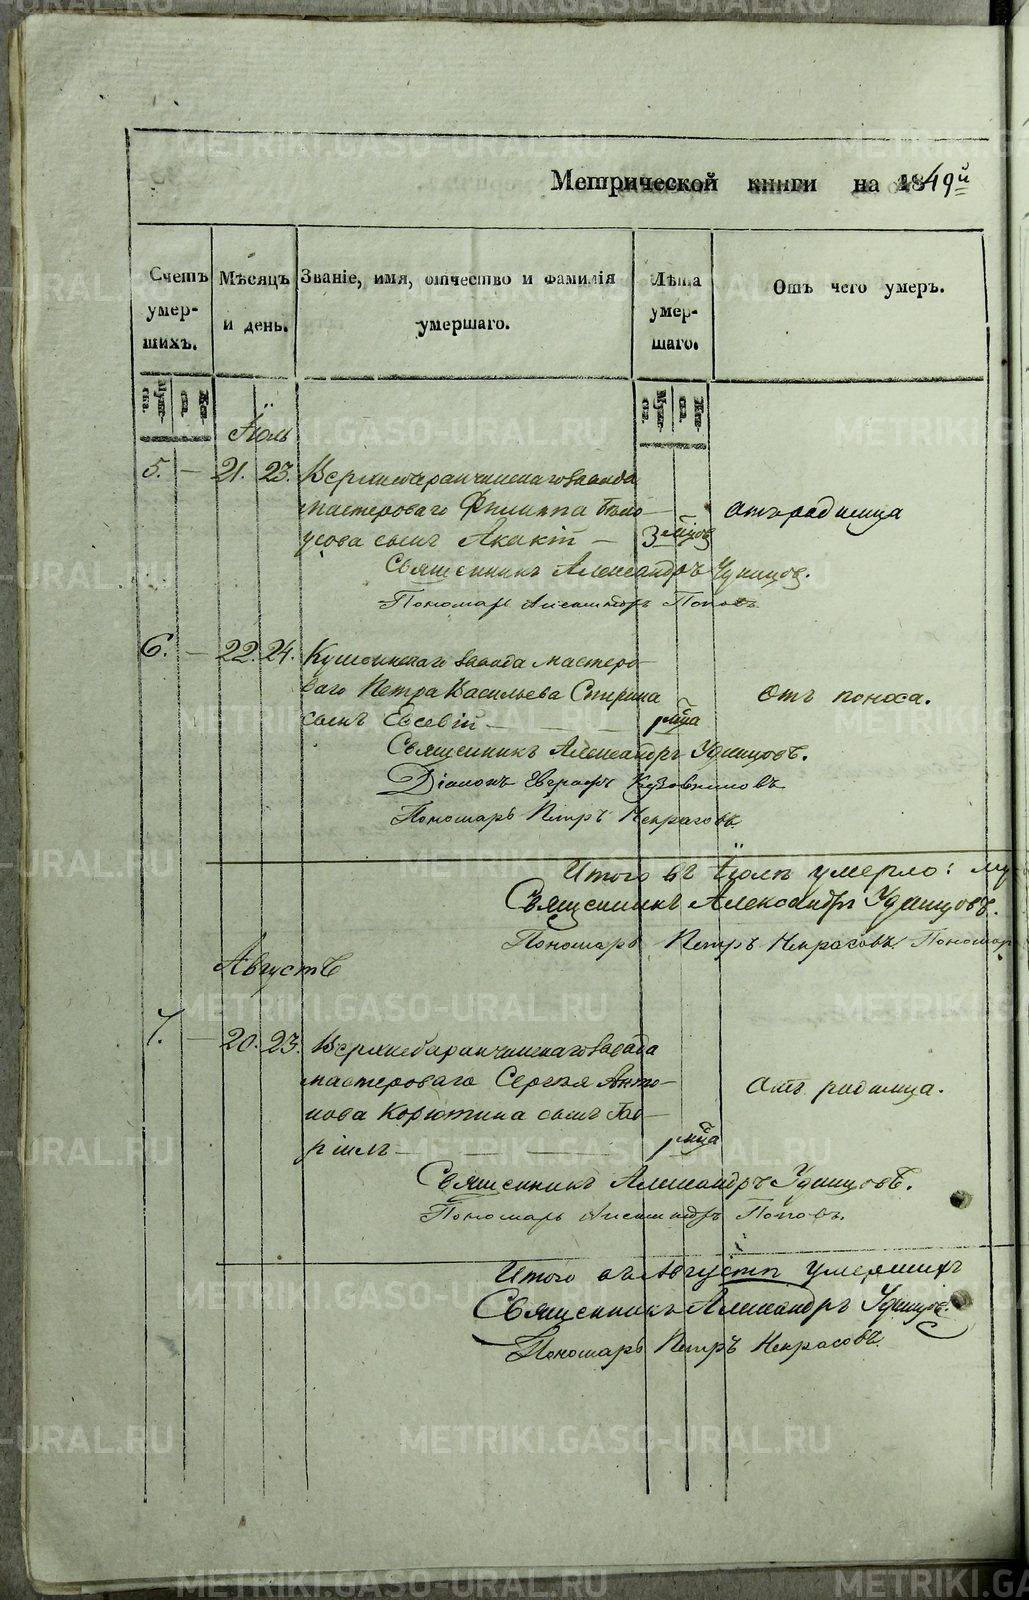 Метрической книги на 1849й
Счетъ умершихъ.
Мѣсяцъ и день.
Званіе, имя, отчество и фамилія умершаго.
Лѣта умершаго.
Отъ чего умеръ.
Іюль
5. — 21. 23. Верхнебаранчинскаго завода
мастероваго Филиппа Бело-
усова сынъ Акакій — 3 мцов
отъ родимца
Священникъ Александръ Удинцов.
Пономарь Александръ Поповъ
6. — 22. 24. Кушвинскаго завода мастеро-
ваго Петра Васильева Спирина
сынъ Евсевій — мца
отъ поноса.
Священникъ Александръ Удинцовъ.
Діаконъ Евграфъ Кузовниковъ
Пономарь Петръ Некрасовъ
Итого въ Іюлѣ умерло: му
Священникъ Александръ Удинцовъ.
Пономарь Петръ Некрасовъ. Пономар
Августъ
7. — 20. 23. Верхнебаранчинскаго завода
мастероваго Сергея Анто-
нова Корюткина сынъ Гав-
ріилъ — мца
отъ родимца.
Священникъ Александръ Удинцовъ.
Пономарь Александръ Поповъ.
Итого въ Августѣ умершихъ
Священникъ Александръ Удинцов.
Пономарь Петръ Некрасовъ
METRIKI.GASO-URAL.RU